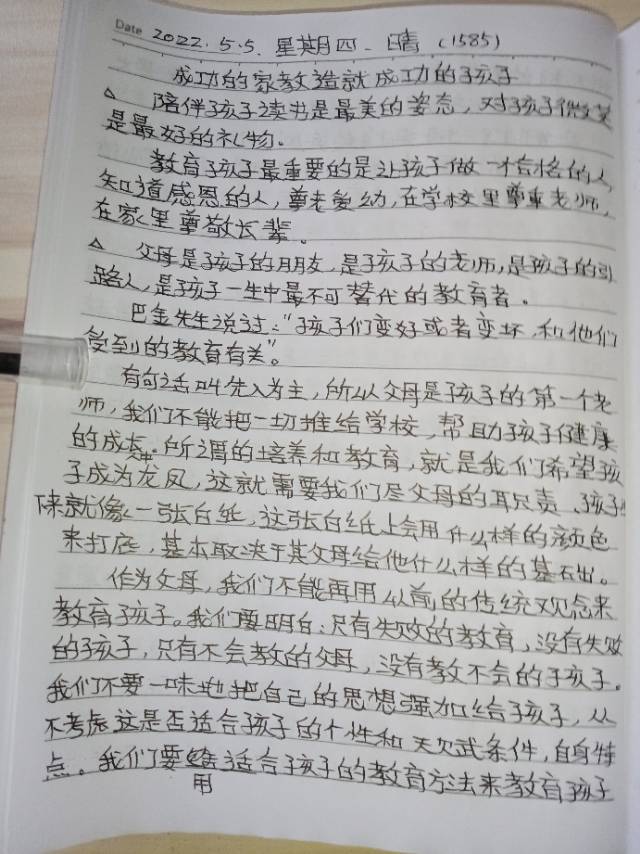 Date 2022.5.5. 星期四、晴 (1585)
成功的家教造就成功的孩子
△ 陪伴孩子读书是最美的姿态，对孩子微笑
是最好的礼物。
教育孩子最重要的是让孩子做一个合格的人，
知道感恩的人，尊老爱幼，在学校里尊重老师，
在家里尊敬长辈。
△ 父母是孩子的朋友，是孩子的老师，是孩子的引
路人，是孩子一生中最不可替代的教育者。
巴金先生说过："孩子们变好或者变坏，和他们
受到的教育有关"。
有句话叫先入为主，所以父母是孩子的第一个老
师，我们不能把一切推给学校，帮助孩子健康
的成长。所谓的培养和教育，就是我们希望孩
子成为龙凤，这就需要我们尽父母的职责、孩子生
下来就像一张白纸，这张白纸上会用什么样的颜色
来打底，基本取决于其父母给他什么样的基石出。
作为父母，我们不能再用以前的传统观念来
教育孩子。我们要明白：只有失败的教育，没有失败
的孩子，只有不会教的父母，没有教不会的孩子。
我们不要一味地把自己的思想强加给孩子，从
不考虑这是否适合孩子的个性和天欠武条件，自身特
点。我们要用适合孩子的教育方法来教育孩子